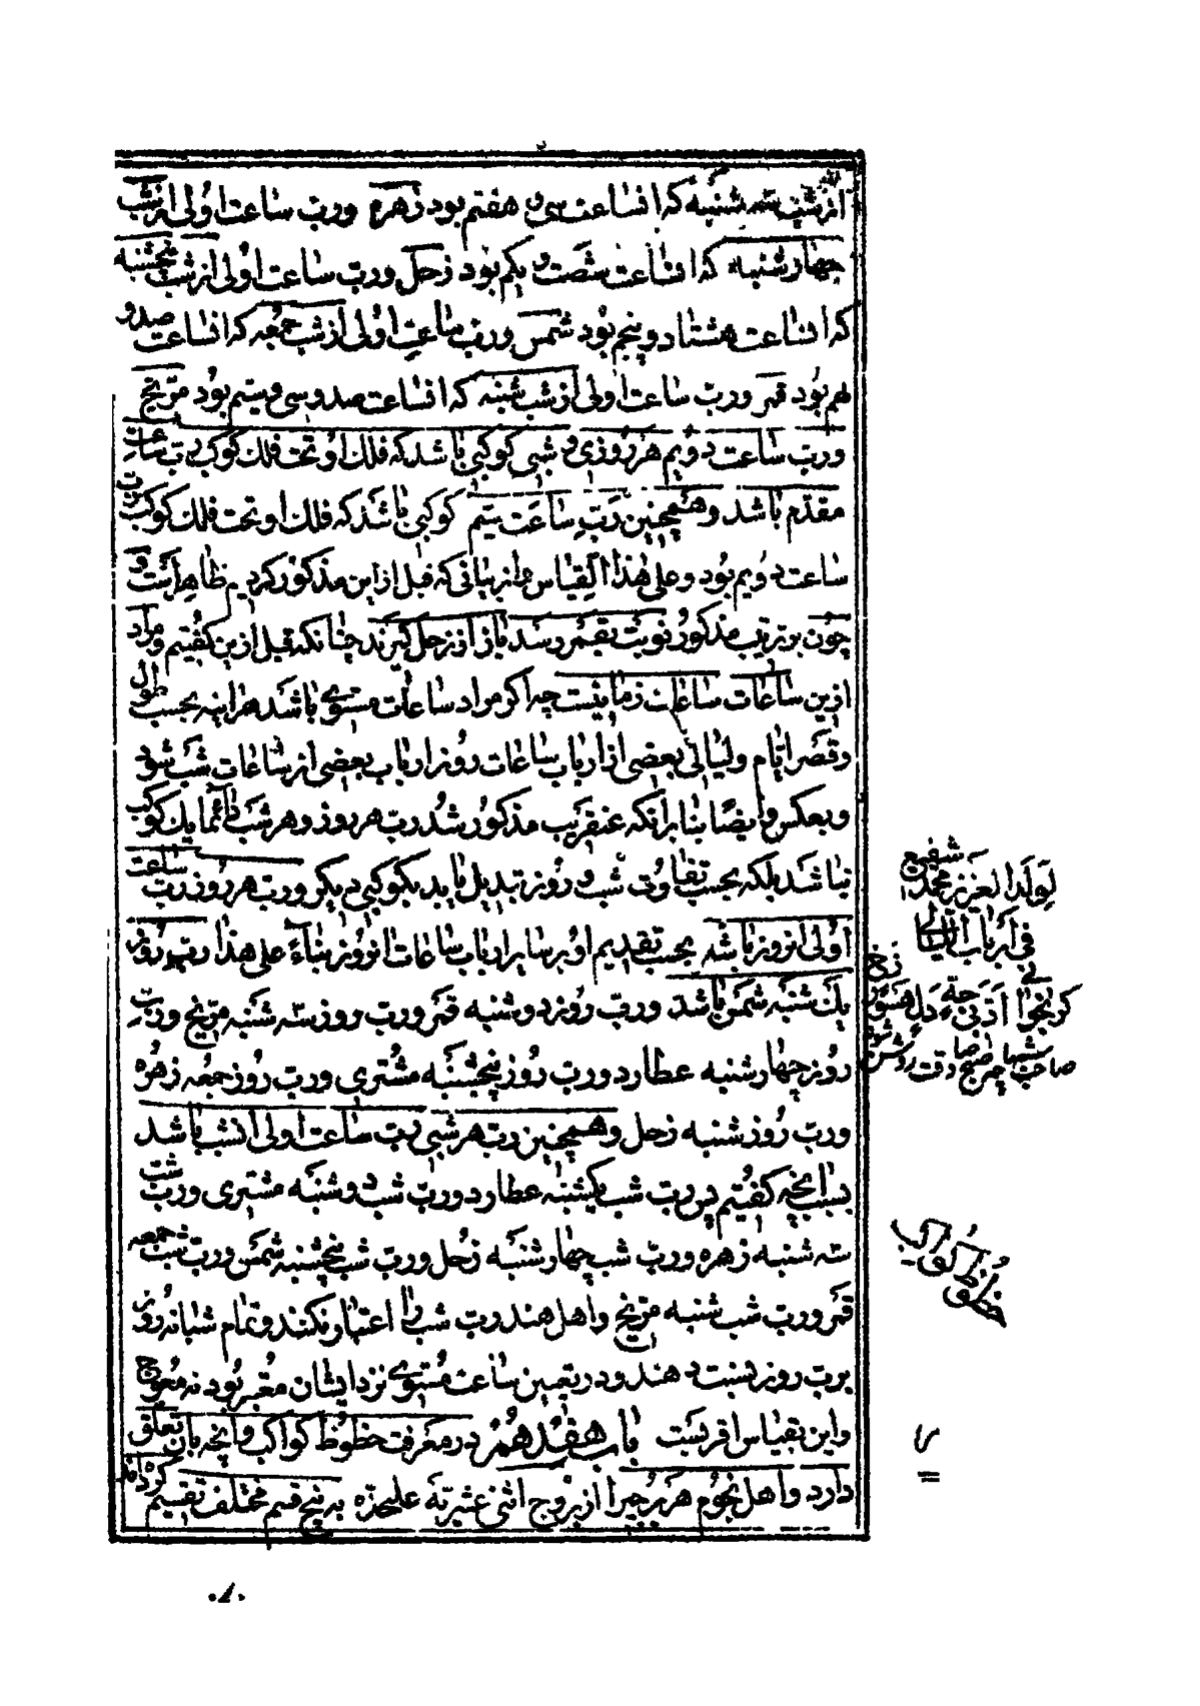 از شب سه شنبه که ان ساعت سی و هفتم بود زهره و رب ساعت اولی از شب
چهارشنبه که ان ساعت شصت و یکم بود زحل و رب ساعت اولی از شب پنجشنبه
که ان ساعت هشتاد و پنجم بود شمس و رب ساعت اولی از شب جمعه که ان ساعت صد و
نهم بود قمر و رب ساعت اولی از شب شنبه که ان ساعت صد و سی و سیم بود مریخ
و رب ساعت دویم هر روزی و شبی کوکبی باشد که فلک او تحت فلک کوکب رب ساعت
مقدم باشد و همچنین رب ساعت سیم کوکبی باشد که فلک او تحت فلک کوکب رب
ساعت دویم بود و علی هذا القیاس و از بیانی که قبل از این مذکور کردیم ظاهر است و
چون بر ترتیب مذکور نوبت بقمر رسد باز از زحل گیرند چنانکه قبل ازین گفتیم و مراد
ازین ساعات ساعات زمانیست چه اگر مراد ساعات مستوی باشد هراینه بحسب طول
و قصر ایام و لیالی بعضی از ارباب ساعات روز ارباب بعضی از ساعات شب شود
و بعکس و ایضا بنا برانکه عنقریب مذکور شد رب هر روز و هر شب دائما یک کوکب
نباشد بلکه بحسب تفاوت شب و روز تبدیل یابد بکوکبی دیگر و رب هر روز رب ساعت
اولی انروز باشد بحسب تقدیم او بر سایر ارباب ساعات انروز بناء علی هذا رب روز
یک شنبه شمس باشد و رب روز دوشنبه قمر و رب روز سه شنبه مریخ و رب
روز چهارشنبه عطارد و رب روز پنجشنبه مشتری و رب روز جمعه زهره
و رب روز شنبه زحل و همچنین رب هر شبی رب ساعت اولی انشب باشد
بسبب انچه گفتیم پس رب شب یکشنبه عطارد و رب شب دوشنبه مشتری و رب شب
سه شنبه زهره و رب شب چهارشنبه زحل و رب شب پنجشنبه شمس و رب شب جمعه
قمر و رب شب شنبه مریخ و اهل هند رب شب را اعتبار نکنند و تمام شبانه روز
برب روز نسبت دهند و در تعیین ساعت مستوی نزد ایشان معتبر بود نه معوج
و این بقیاس اقربست باب هفدهم در معرفت حظوظ کواکب و انچه بان تعلق
دارد و اهل نجوم هر برجیرا از بروج اثنی عشریه علیحده به پنج قسم مختلف تقسیم کرده‌اند
لولد العزیز محمد شفیع
فی ارباب اللیالی
حظوظ کواکب